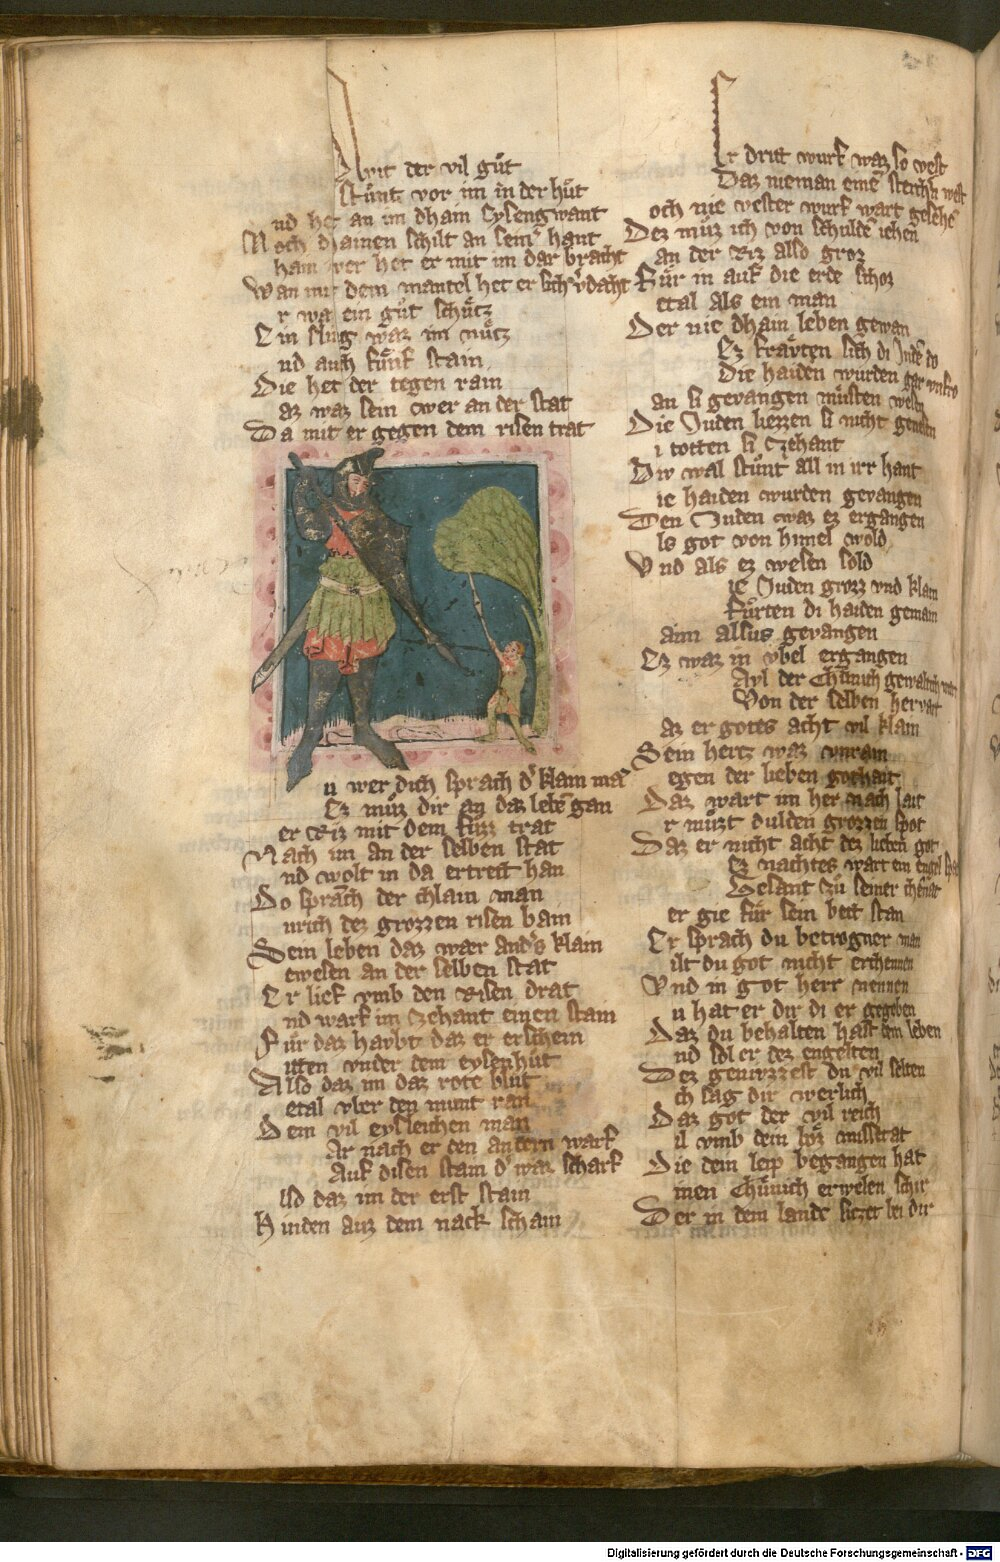 Avit der vil gůt
Stůnt vor im in der hůt
nd het an im dhain Eysengwant
Noch dhainen schilt an seinr hant
ham wer het er mit im dar bracht
Wan mit dem mantel het er sich vˀdacht
r waz ein gůt schütz
Ein sling waz im nütz
nd auch fünf stain
Die het der tegen rain
az waz sein wer an der stat
Da mit er gegen dem risen trat
u wer dich sprach dˀ klain man
Ez můz dir an daz lebē gan
er Riz mit dem fůzz trat
Nach im an der selben stat
nd wolt in da ertreit han
Do sprach der chlain man
urich dez grozzen risen bain
Sein leben daz wær andˀs klain
ewesen an der selben stat
Er lief vmb den Risen drat
nd warf im zehant einen stain
Für daz haubt daz er erschein
itten vnder dem eysenhůt
Also daz im daz rote blůt
etal vber den munt ran
Dem vil eysleichen man
Ar nach er den andern warf
Auf disen stain dˀ waz scharf
lso daz im der erst stain
Hinden auz dem nack schain
r dritt wurf waz so vest
Daz nieman einē sterchern west
och nie vester wurf wart gesehē
Dez můz ich von schuldē iehen
an der Riz also groz
Für in auf die erde schoz
etal als ein man
Der nie dhain leben gewan
Ez frävten sich di Judē do
Die haiden wurden gar vnfro
an si gevangen můsten wesen
Die Juden liezzen si nicht genesen
i totten si zehant
Div wal stůnt all in irr hant
ie haiden wurden gevangen
Den Juden waz ez ergangen
ls got von himel wold
Vnd als ez wesen sold
ie Juden grozz vnd klain
Fůrten di haiden gemain
aim alsus gevangen
Ez waz in vbel ergangen
Ayl der Chünich gewaltich waz
Von der selben hervart
az er gotes acht vil klain
Sein hertz waz vnrain
egen der lieben gothait
Daz wart im her nach lait
r můzt dulden grozzen spot
Daz er nicht acht dez lieben got
Ez nachtes wart ein engel
Gesant zů seiner
er gie für sein bett stan
Er sprach du betrogner man
ilt du got nicht erchennen
Vnd in got herr nennen
u hat er dir di er gegeben
Daz du behalten hast dein leben
nd sol er dez engelten
Dez genivzzest du vil selten
ch sag dir werlich
Daz got der vil reich
il vmb dein böz missetat
Die dein leip begangen hat
inen Chünich erwelen schir
Der in dem lande siczet bei dir
Digitalisierung gefördert durch die Deutsche Forschungsgemeinschaft - DFG